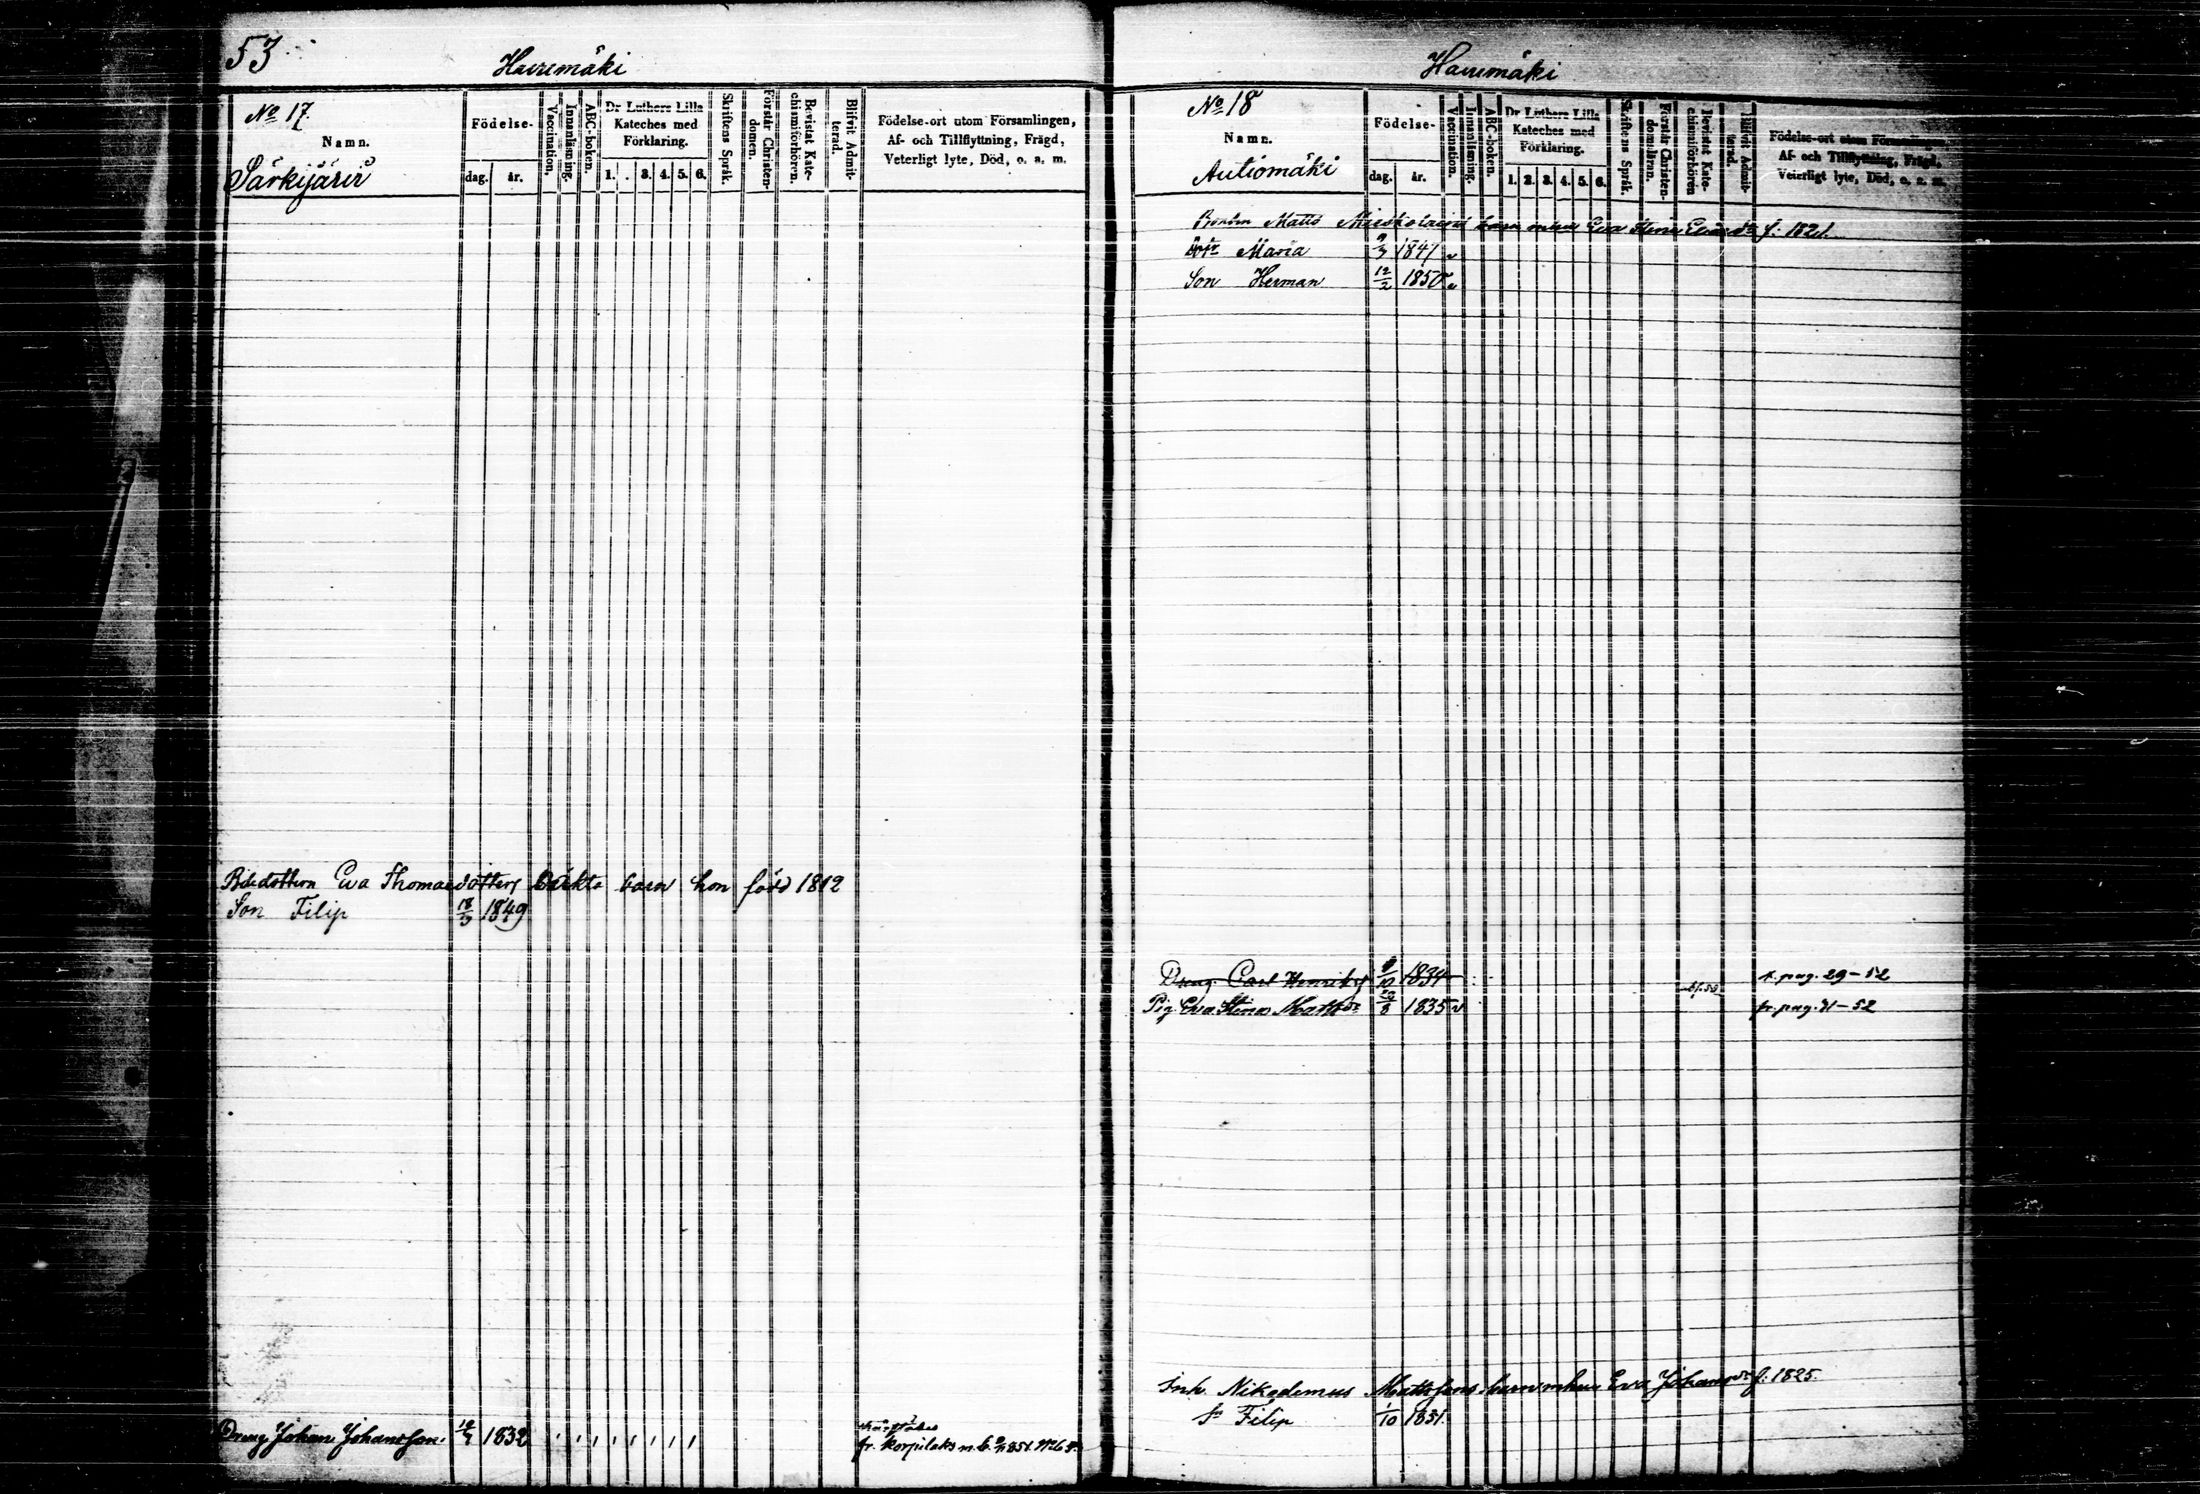 53
Hauremäki
No 17.
Namn.
Särkijärvi
Födelse-
dag. år.
Vaccination.
Innanläsning.
ABC-boken.
Dr Luthers Lilla
Kateches med
Förklaring.
1. 3. 4. 5. 6.
Skriftens Språk.
Förstår Christen-
domen.
Bevistat Kate-
chismiförhören.
Blifvit Admit-
terad.
Födelse-ort utom Församlingen,
Af- och Tillflyttning, Frägd,
Veterligt lyte, Död, o. a. m.
Eva Thomasdotters barn hon född 1812
Son Filip 18/3 1849
Dreng Johan Johansson 1832
fr. Korpilaks
Hauremäki
No 18
Namn.
Autiomäki
Födelse-
dag. år.
Vaccination.
Innanläsning.
ABC-boken.
Dr Luthers Lilla
Kateches med
Förklaring.
1. 2. 3. 4. 5. 6.
Skriftens Språk.
Förstår Christen-
domsläran.
Bevistat Kate-
chismiförhören
Blifvit Admit-
terad.
Födelse-ort utom Församlingen,
Af- och Tillflyttning, Frägd,
Veterligt lyte, Död, o. a. m.
Bonden Matts barn Eva Stina f. 1821.
Maria 1841
Son Herman 12/2 1850
Dreng Carl 1834 f. pag. 29-52
Pig. Eva Stina 1835 fr. pag. 41-52
Inh. Nikodemus Mattssons barn Eva f. 1825.
Filip 1/10 1851.